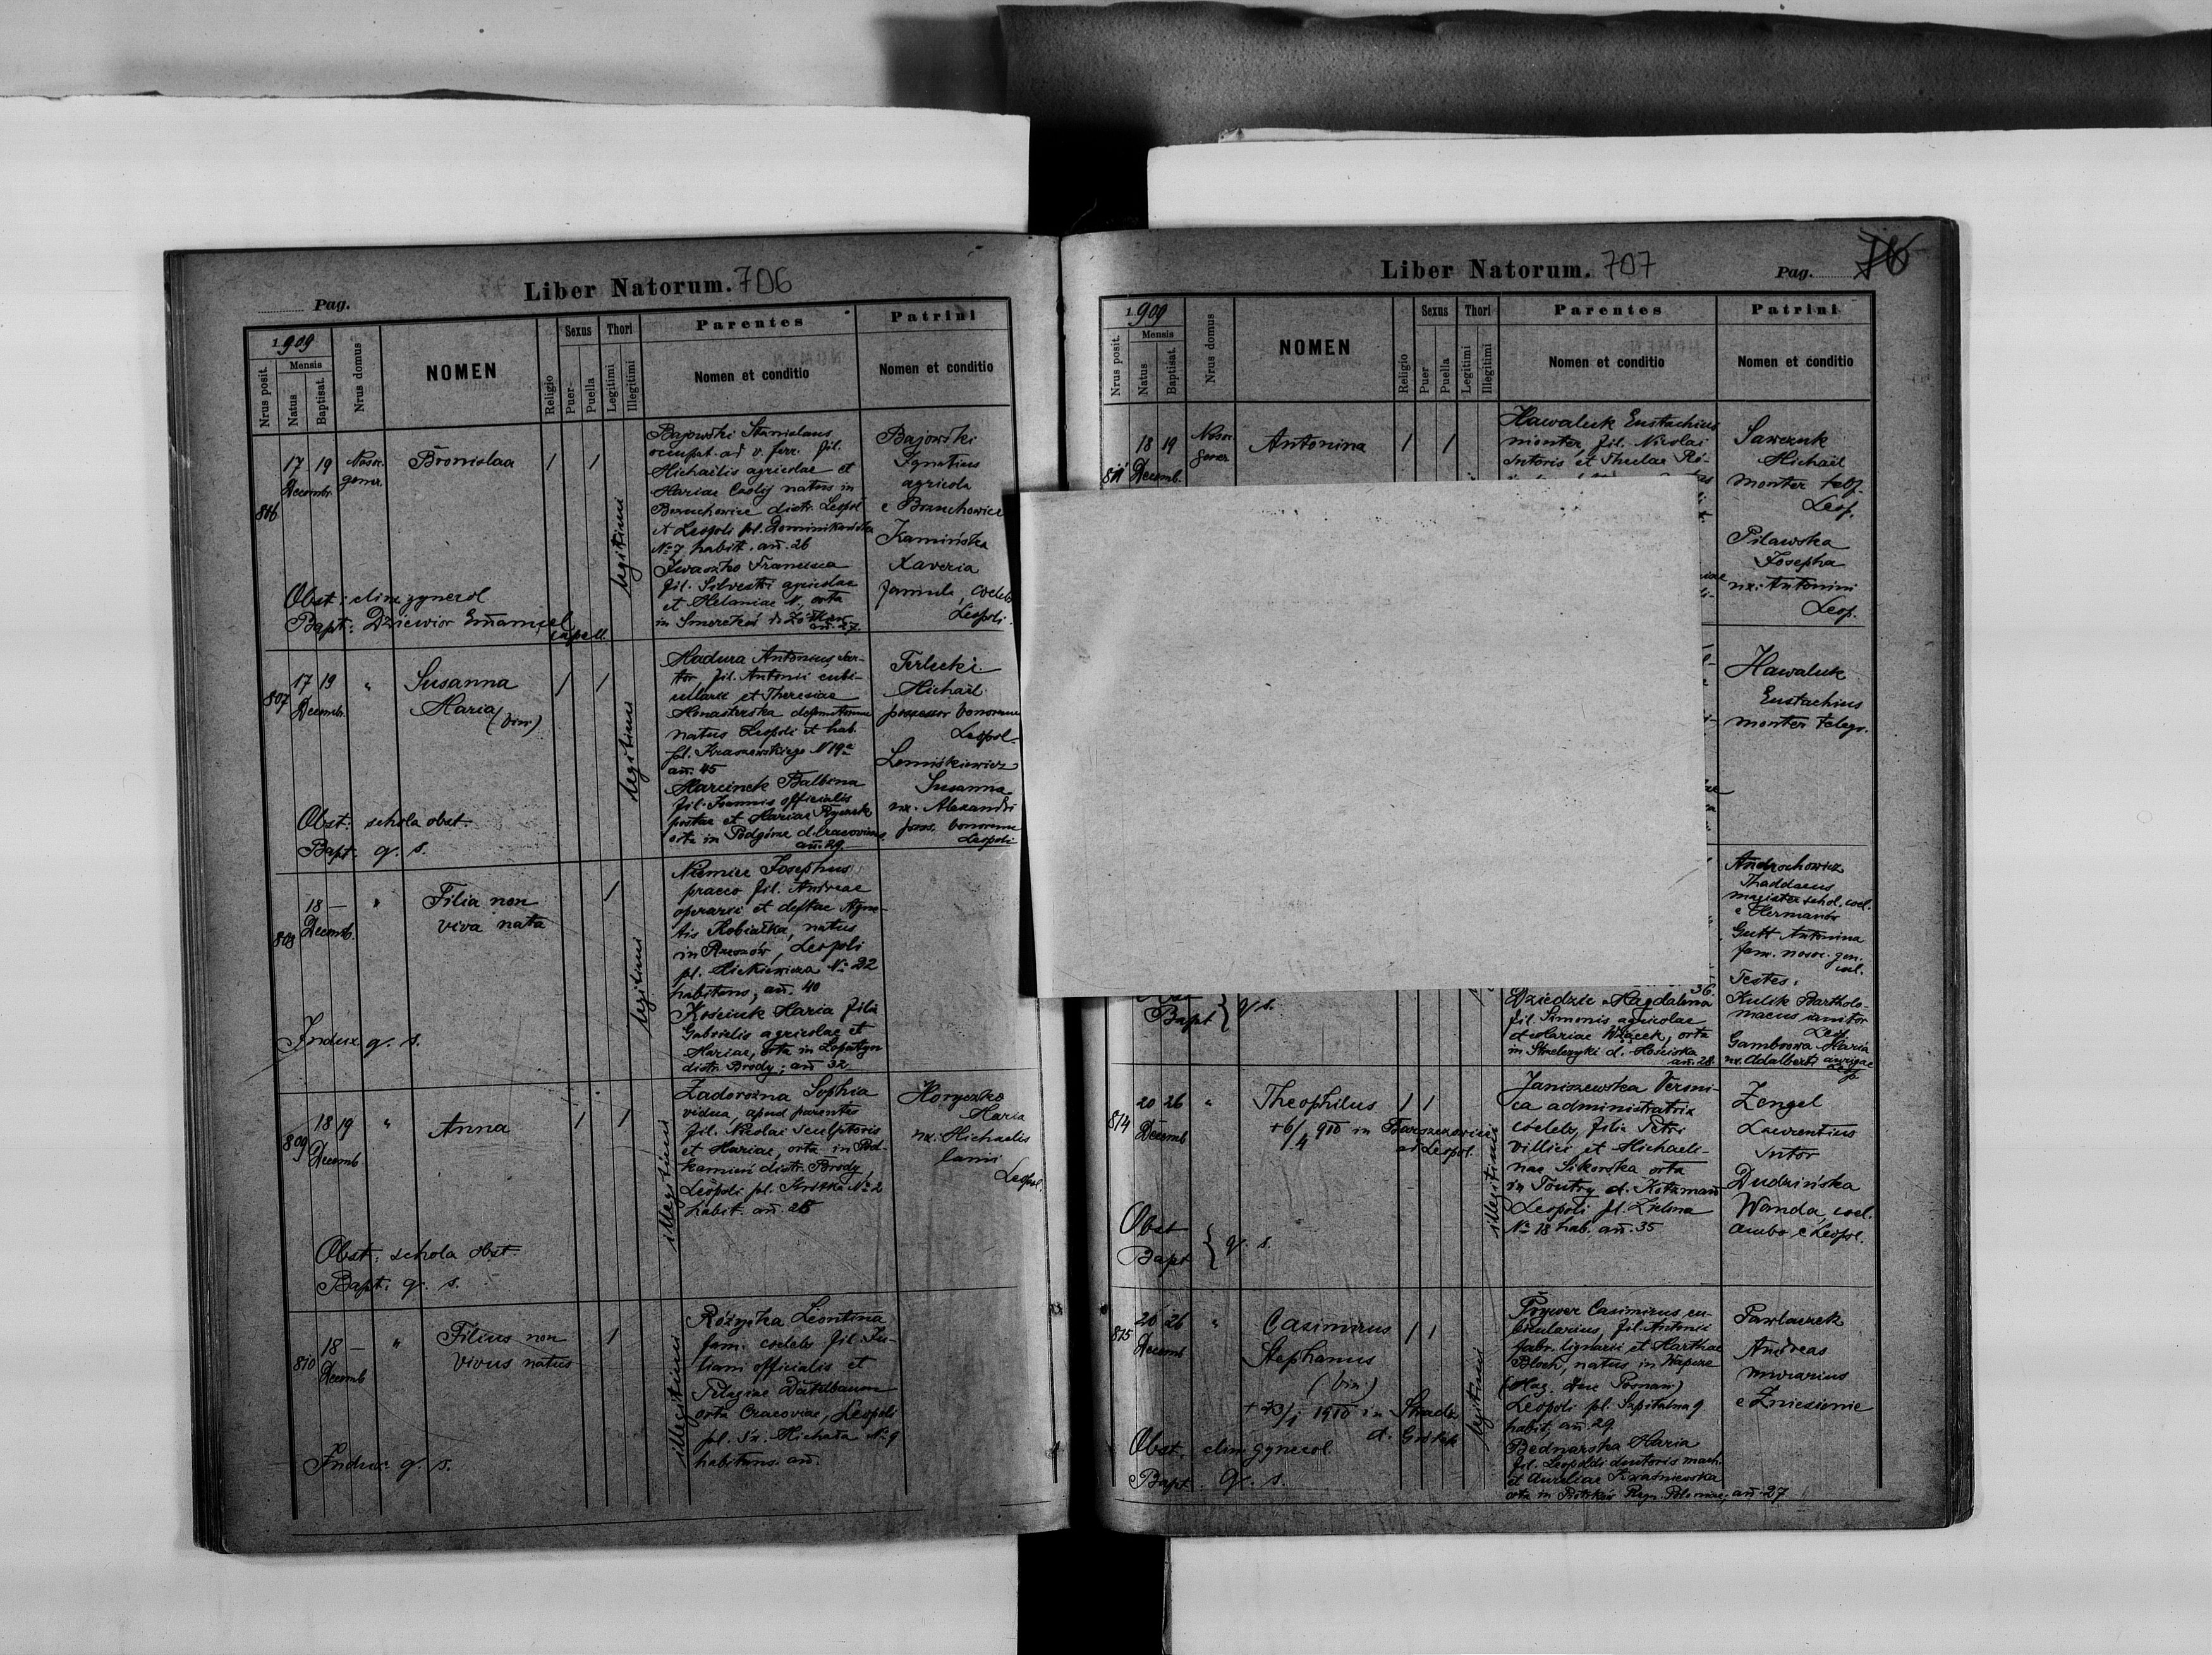 Liber Natorum. 706
Pag.
1909
Nrus posit.
Mensis
Natus
Baptisat.
Nrus domus
NOMEN
Religio
Sexus
Puer
Puella
Thori
Legitimi
Illegitimi
Parentes
Nomen et conditio
Patrini
Nomen et conditio
806
17 19
Decembr.
Nosoc.
gener.
Bronislaa
legitimi
Bajowski Stanislaus
occupat. ad v. ferr. fil.
Michaëlis agricolae et
Mariae natus in
Brzuchowice distr. Leopol
et Leopoli pl. Dominikańska
No 7 habit. añ. 26
Iwaszko Francisca
fil. Silvestri agricolae
et Melaniae N., orta
in Smereków d. Żółkiew
añ. 27.
Bajowski
Ignatius
agricola
e Brzuchowice
Kamińska
Xaveria
famula, coeleb
Leopoli.
Obst: clin. gynecol
Bapt: Dziewior Emanuel
capell.
807
17 19
Decembr.
"
Susanna
Maria
(bin)
legitimi
Madura Antonius, sar-
tor, fil. Antonii cubi-
cularii et Theresiae
Monasterska defunctorum
natus Leopoli et hab.
pl. Kraszewskiego N 19a
añ. 45
Marcinek Balbina
fil. Joannis officialis
postae et Mariae Ryczek
orta in Podgórze d. Cracoviens.
añ. 29.
Terlecki
Michaël
possessor bonorum
Leopol.
Lemiśkiewicz
Susanna
ux. Alexandri
poss. bonorum
Leopoli
Obst: schola obst.
Bapt: q. s.
808
18 —
Decemb.
"
Filia non
viva nata
legitimi
Niemiec Josephus
praeco fil. Andreae
operarii et deftae Agne-
tis Robiałka, natus
in Leopoli
pl. Mickiewicza No 22
habitans, añ. 40
Kościuk Maria filia
Gabrielis agricolae et
Mariae, orta in Łopatyn
distr. Brody; añ 32
Indux q. s.
809
18 19
Decemb
"
Anna
illegitimi
Zadorożna Sophia
vidua, apud parentes
fil. Nicolai sculptoris
et Mariae, orta in Pod-
kamień distr. Brody,
Leopoli pl. Kritka No 2
habit. añ. 26
Horyczko
Maria
ux. Michaelis
lanii
Leopol.
Obst: schola obst.
Bapt: q. s.
810
18 —
Decemb
"
Filius non
vivus natus
illegitimi
Różycka Leontina
fam. coelebs fil. Ju-
liani officialis et
Pelagiae
orta Cracoviae, Leopoli
pl. Św. Michała No 9
habitans. añ.
Indux q. s.
Liber Natorum. 707
Pag. 76
1909
Nrus posit.
Mensis
Natus
Baptisat.
Nrus domus
NOMEN
Religio
Sexus
Puer
Puella
Thori
Legitimi
Illegitimi
Parentes
Nomen et conditio
Patrini
Nomen et conditio
811
18 19
Decemb.
Nosoc.
gener.
Antonina
Hawaluk Eustachius
monter, fil. Nicolai
sutoris et Theclae Ro-
Sawczuk
Michaël
monter telef.
Leop.
Pilawska
Josepha
ux: Antonini
Leop.
Hawaluk
Eustachius
monter telegr.
Androchowicz
Thaddaeus
magister schol. coel.
e Hermanów
Gutt Antonina
fam. nosoc. gen.
coel.
Testes:
Kulik Bartholo-
maeus janitor
Leop
Gambrowa Maria
ux. Adalberti aurigae
Leop
Bapt } q. s.
36.
Dziedzic Magdalena
fil. Simonis agricolae
et Mariae Wżącek, orta
in Strzelczyki d. Mościska
añ. 28.
814
20 26
Decemb
"
Theophilus
+ 6/4 910 in Barszczowice
ad Leopol.
illegitimus
Janiszewska Veroni-
ca administratrix
coelebs, filia Petri
villici et Michaeli-
nae Sikorska orta
in Toutry d. Kotzmań
Leopoli pl. Zielona
No 18 hab. añ. 35
Zengel
Laurentius
sutor
Dudzińska
Wanda, coel.
ambo e Leopol.
Obst
Bapt } q. s.
815
20 26
Decemb
"
Casimirus
Stephanus
(bin)
+ 23/1 1910 in Stradz
d. Gródek
legitimi
Prywer Casimirus, cu-
bicularius, fil. Antonii
fabr. lignarii et Marthae
Bloch, natus in Wapcze
(Mag. duc Poznań)
Leopoli pl. Szpitalna 9
habit, añ. 29
Bednarska Maria
fil. Leopoldi ductoris mach.
et Aureliae Kwaśniewska
orta in Piotrków Regn. Poloniae, añ. 27
Pawlaczek
Andreas
murarius
e Zniesienie
Obst. clin. gynecol.
Bapt. q. s.